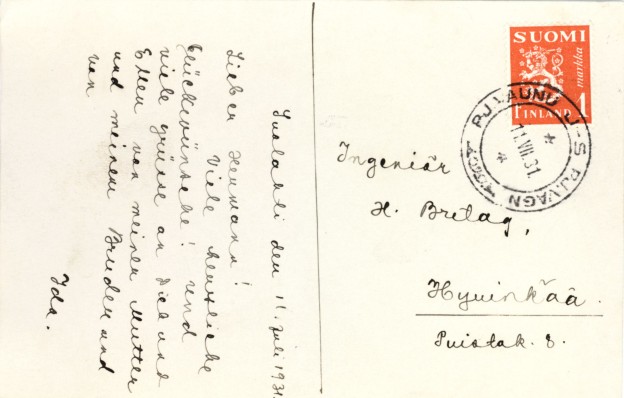 Suolahti den 11. Juli 1931.
Lieber Hermann!
Viele herzliche
Glückwünsche! und
viele grüsse an Dich und
Ellen von meiner Mutter
und meinem Bruder und
von
Ida.
SUOMI
markka
1 FINLAND 1
PJ.VAUNU J-S PJ.VAGN
11.VII.31.
Ingeniör
H. Bretag,
Hyvinkää.
Puistok. 8.